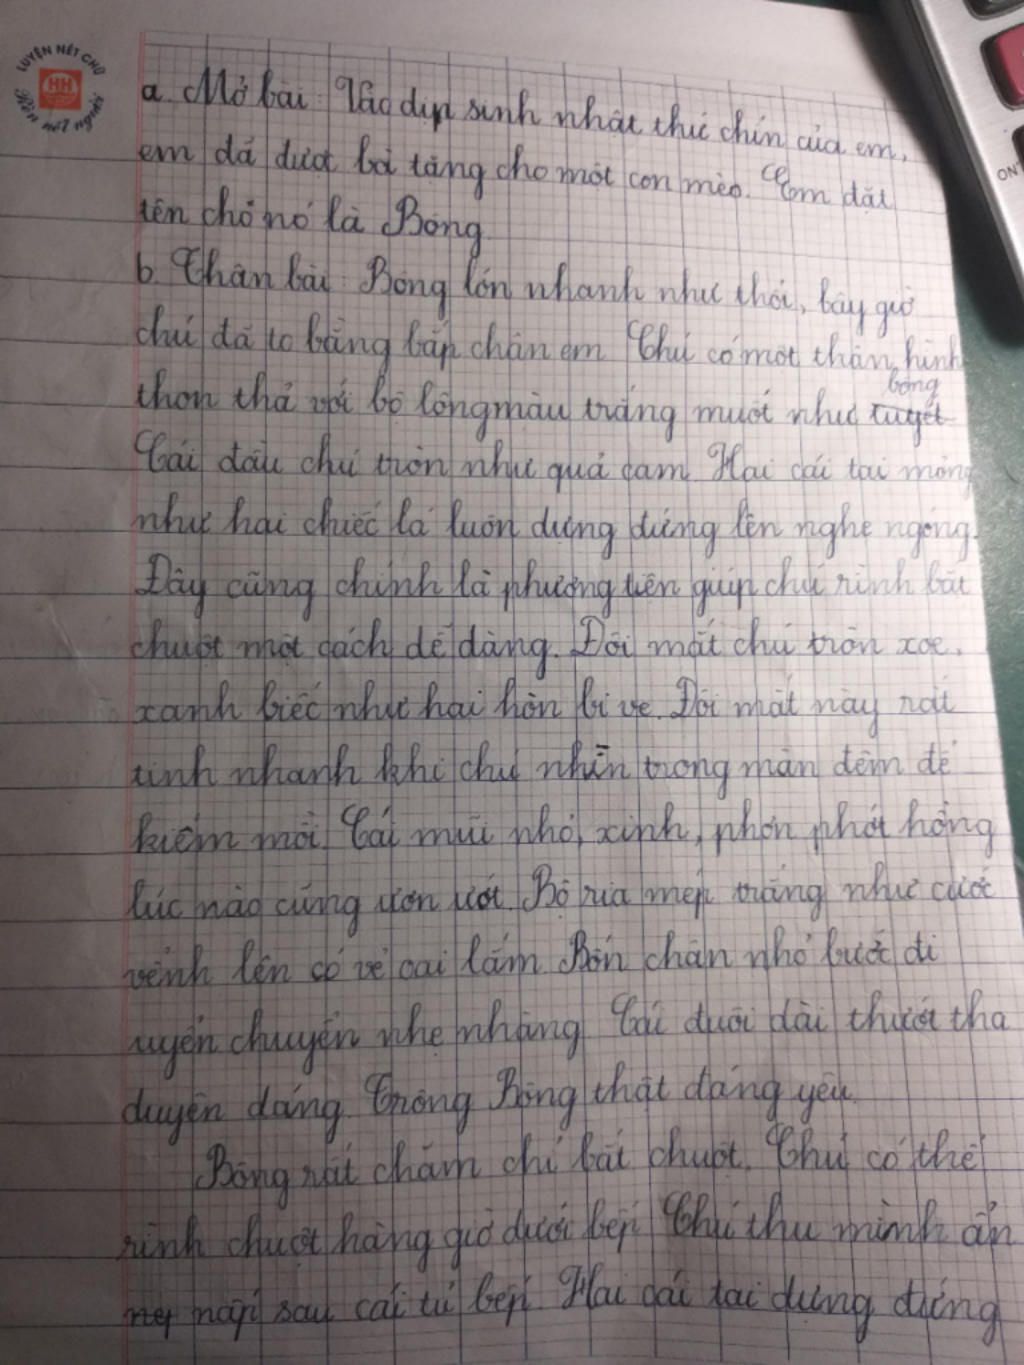 LUYỆN NÉT CHỮ
HH
Rèn nết người
ON
a. Mở bài: Vào dịp sinh nhật thứ chín của em,
em đã được bà tặng cho một con mèo. Em đặt
tên cho nó là Bông.
b. Thân bài: Bông lớn nhanh như thổi, bây giờ
chú đã to bằng bắp chân em. Chú có một thân hình
thon thả với bộ lông màu trắng muốt như bông
Cái đầu chú tròn như quả cam. Hai cái tai mỏng
như hai chiếc lá luôn dựng đứng lên nghe ngóng.
Đây cũng chính là phương tiện giúp chú rình bắt
chuột một cách dễ dàng. Đôi mắt chú tròn xoe,
xanh biếc như hai hòn bi ve. Đôi mắt này rất
tinh nhanh khi chú nhìn trong màn đêm để
kiếm mồi. Cái mũi nhỏ, xinh, phơn phớt hồng
lúc nào cũng ươn ướt. Bộ ria mép trắng như cước
vểnh lên có vẻ oai lắm. Bốn chân nhỏ bước đi
uyển chuyển nhẹ nhàng. Cái đuôi dài thướt tha
duyên dáng. Trông Bông thật đáng yêu.
Bông rất chăm chỉ bắt chuột. Chú có thể
rình chuột hàng giờ dưới bếp. Chú thu mình ẩn
nấp sau cái tủ bếp. Hai cái tai dựng đứng